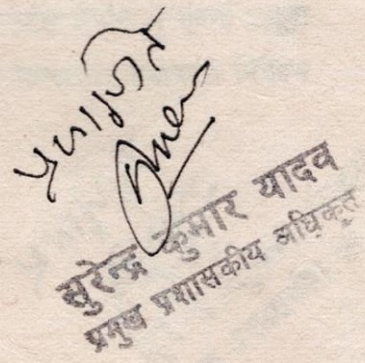 प्रमाणित
सुरेन्द्र कुमार यादव
प्रमुख प्रशासकीय अधिकृत